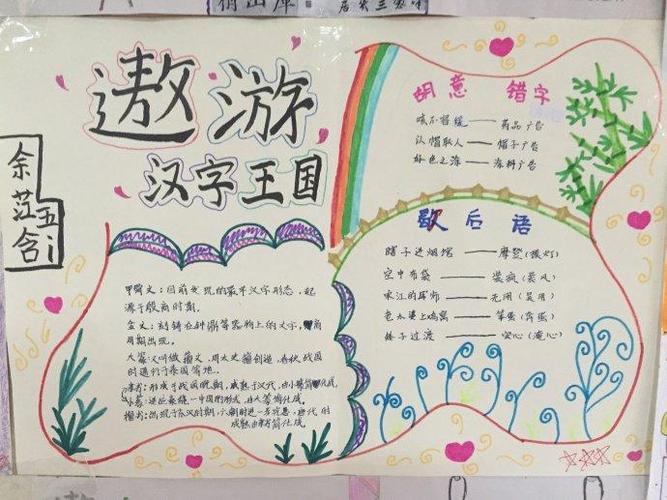 遨游
汉字王国
余
含
五i
甲骨文：目前发现的最早汉字形态，起
源于殷商时期。
金文：刻铸在钟鼎等器物上的文字，商
周期出现。
大篆又叫做籀文，周太史籀创造，春秋战国
时通行于秦国等地。
隶书：形成于战国晚期，成熟于汉代，由小篆简化成。
小篆：秦统一中国的形式，由大篆简化成。
楷书：出现于东汉时期，六朝时进一步完善，唐代时
成熟由隶书简化成。
胡意 错字
咳不容缓——药品广告
认帽取人——帽子广告
好色之漆——涂料广告
歇后语
瞎子进烟馆——摩登（摸灯）
空中布袋——装疯（装风）
宋江的军师——无用（吴用）
上鸡窝——笨蛋
子过渡——安心（淹心）